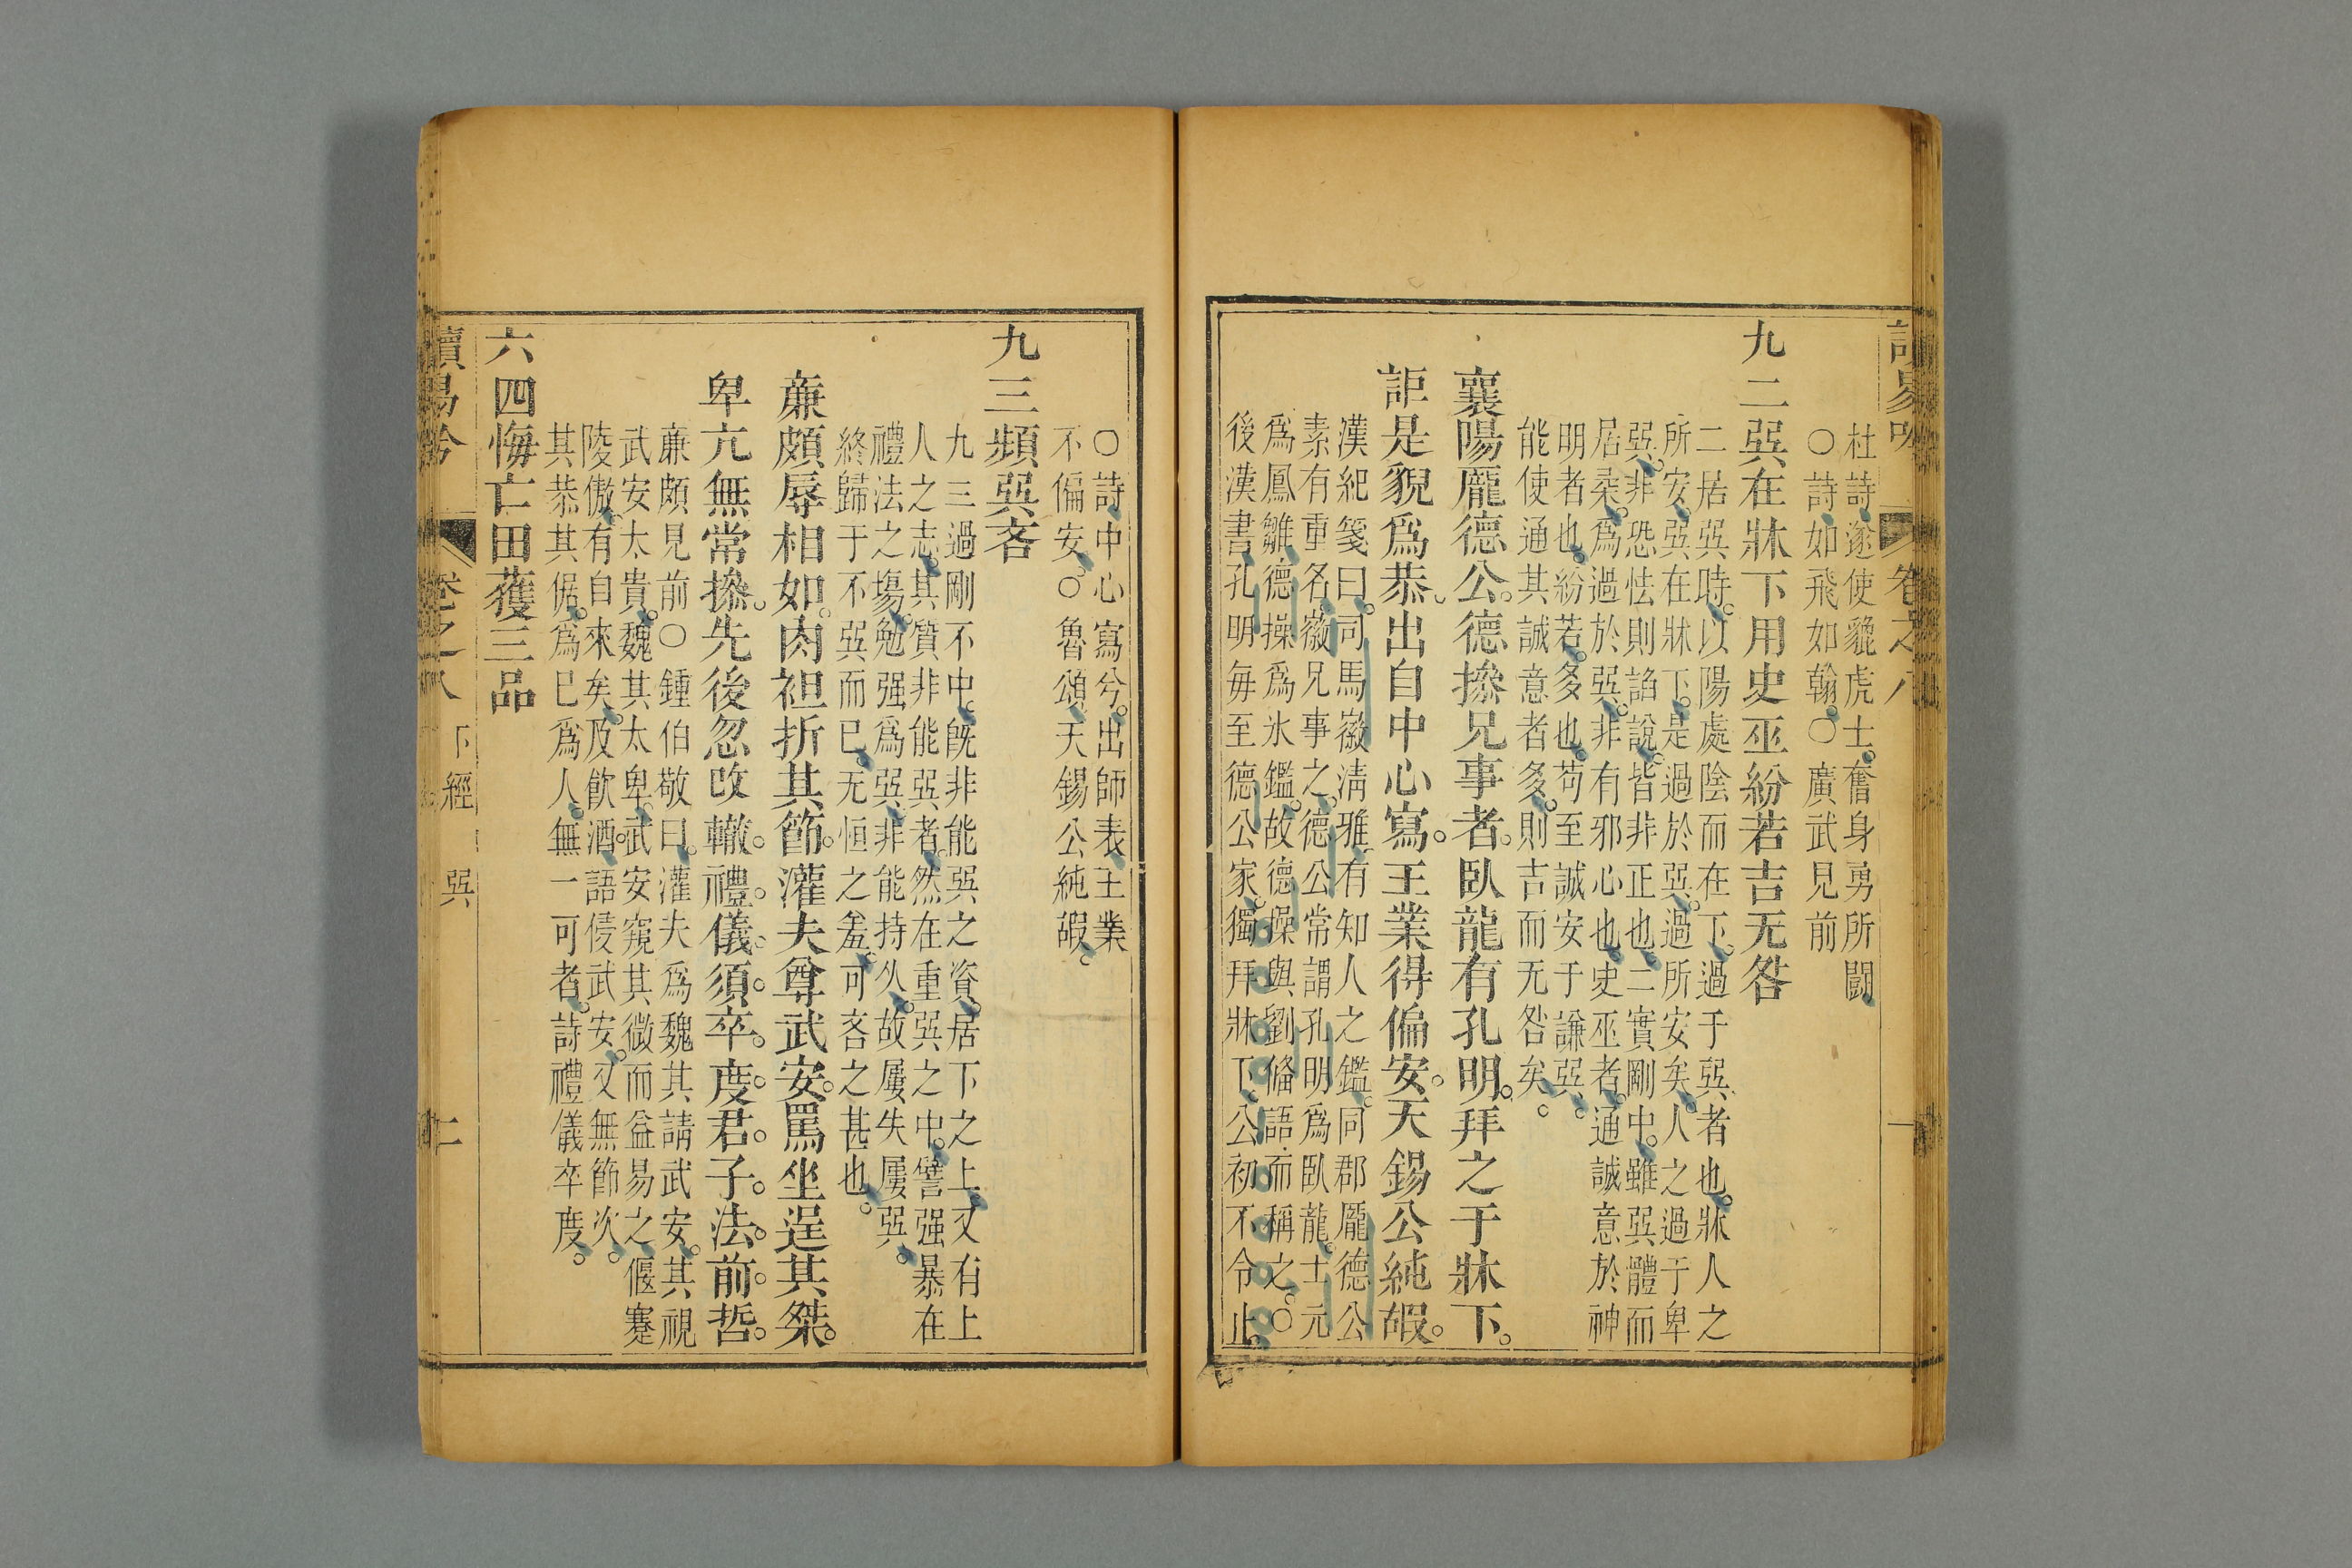 讀易吟 卷之八 一
杜詩遂使貔虎士奮身勇所闘
〇詩如飛如翰〇廣武見前
九二巽在牀下用史巫紛若吉无咎
二居巽時以陽處陰而在下過于巽者也牀人之
所安巽在牀下是過於巽過所安矣人之過于卑
巽非恐怯則諂說皆非正也二實剛中雖巽體而
居柔爲過於巽非有邪心也史巫者通誠意於神
明者也紛若多也苟至誠安于謙巽
能使通其誠意者多則吉而无咎矣
襄陽龐德公德摻兄事者臥龍有孔明拜之于牀下
詎是貌爲恭出自中心寫王業得偏安天錫公純嘏
漢紀箋曰司馬徽淸雅有知人之鑑同郡龐德公
素有重名徽兄事之德公常謂孔明爲臥龍士元
爲鳳雛德操爲水鑑故德操與劉偹語而稱之〇
後漢書孔明每至德公家獨拜牀下公初不令止
〇詩中心寫兮出師表王業
不偏安〇魯頌天錫公純嘏
九三頻巽吝
九三過剛不中旣非能巽之資居下之上又有上
人之志其質非能巽者然在重巽之中譬强暴在
禮法之塲勉强爲巽非能持久故屢失屢巽
終歸于不巽而已无恒之羞可吝之甚也
亷頗辱相如肉袒折其節灌夫尊武安罵坐逞其桀
卑亢無常摻先後忽改轍禮儀須卒度君子法前哲
亷頗見前〇鍾伯敬曰灌夫爲魏其請武安其視
武安太貴魏其太卑武安窺其微而益易之偃蹇
陵傲有自來矣及飮酒語侵武安又無節次
其恭其倨爲已爲人無一可者詩禮儀卒度
六四悔亡田獲三品
讀易吟 卷之八 下經 巽 二